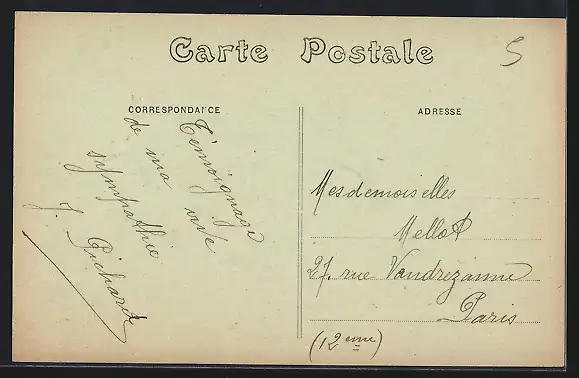 Carte Postale
5
CORRESPONDANCE
ADRESSE
Témoignage
de ma vive
sympathie
J. Richard
Mesdemoiselles
Mellot
27, rue Vandrezanne
Paris
(12eme)